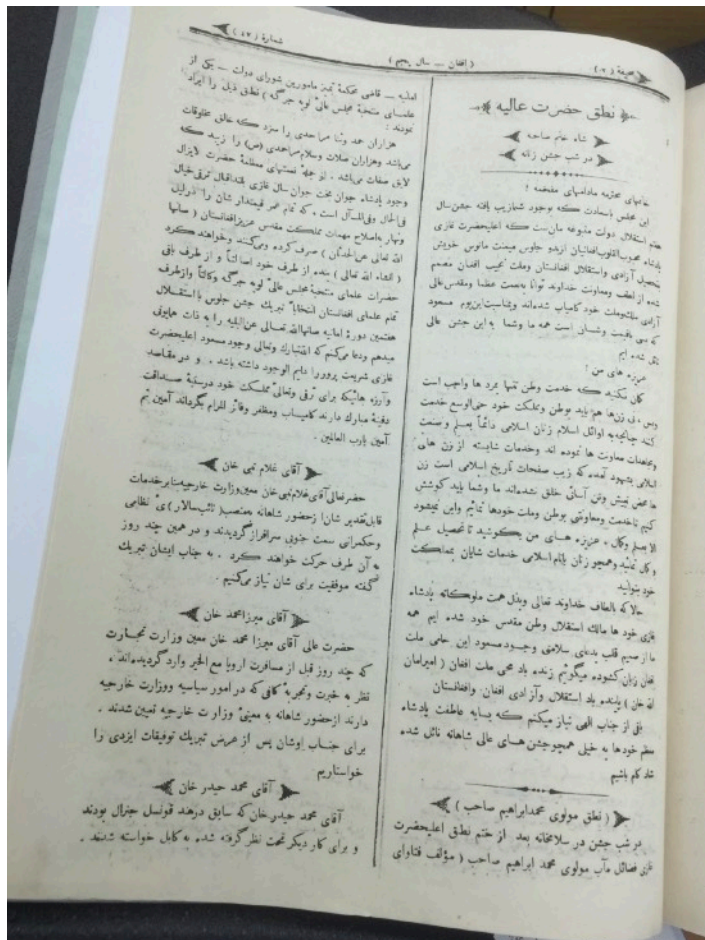 صحیفهٔ (۲)
( افغان — سال پنجم )
شمارهٔ (۴۲)
نطق حضرت عالیه
شاه خانم صاحبه
در شب جشن زنانه
خانمهای محترمه مادامهای مفخمه !
این مجلس باسعادت که بوجود شما زیب یافته جشن سال
هفتم استقلال دولت متبوعه مان‌ست که اعلیحضرت غازی
پادشاه محبوب‌القلوب افغانیان از بدو جلوس میمنت مانوس خویش
بتحصیل آزادی واستقلال افغانستان وملت نجیب افغان مصمم
شده از لطف ومعاونت خداوند توانا به‌نعمت عظما ومقدس‌عالی
آزادی ملک‌وملت خود کامیاب شده‌اند وبمناسبت این یوم مسعود
که سی باقیت وشان است همه ما وشما به این جشن عالی
نائل شده ایم
عزیزه های من !
گمان مکنید که خدمت وطن تنها بمرد ها واجب است
وبس ، نی زن‌ها هم باید بوطن ومملکت خود حتی‌الوسع خدمت
کنند چنانچه به اوائل اسلام زنان اسلامی دائماً بعلم وصنعت
ومجاهدات معاونت ها نموده اند وخدمات شایسته از زن های
اسلامی بشهود آمده که زیب صفحات تاریخ اسلامی است زن
ها محض بعیش وتن آسائی خلق نشده‌اند ما وشما باید کوشش
کنیم تاخدمت ومعاونتی بوطن وملت خودها نمائیم واین نمیشود
الا بعلم وکمال ، عزیزه های من بکوشید تا تحصیل علم
وکمال نمائید وهمچو زنان باناام اسلامی خدمات شایان بمملکت
خود بتوانید
حالا که بالطاف خداوند تعالی وبذل همت ملوکانه پادشاه
غازی خود ها مالک استقلال وطن مقدس خود شده ایم همه
ما از صمیم قلب بدعای سلامتی وجود مسعود این حامی ملت
افغان زبان کشوده میگوئیم زنده باد محی ملت افغان ( امیرامان
الله خان ) پاینده باد استقلال وآزادی افغان وافغانستان
باقی از جناب الهی نیاز میکنم که بسایه عاطفت پادشاه
معظم خودها به خیلی همچو جشن های عالی شاهانه نائل شده
شاد کام باشیم
( نطق مولوی محمدابراهیم صاحب )
در شب جشن در سلامخانه بعد از ختم نطق اعلیحضرت
غازی فضائل مآب مولوی محمد ابراهیم صاحب ( مؤلف فتاوای
امانیه — قاضی محکمهٔ تمیز مامورین شورای دولت — یکی از
علمای منتخبهٔ مجلس عالیٔ لویه جرگه ) نطق ذیل را ایراد
نمودند :
هزاران حمد وثنا مراحدی را سزد که خالق مخلوقات
می‌باشد وهزاران صلات وسلام مراحدی (ص) را زیبد که
لایق صفات می‌باشد . از جملهٔ نعمتهای معظمهٔ حضرت لایزال
وجود پادشاه جوان بخت جوان سال غازی بلنداقبال ترقی‌خیال
فی‌الحال وفی‌المـآل است ، که تمام عمر قیمتدار شان را در لیل
ونهار به‌اصلاح مهمات مملکت مقدس عزیز افغانستان ( صانها
الله تعالی عن‌الحدثان ) صرف کرده ومی‌کنند وخواهند کرد
( انشاء الله تعالی ) بنده از طرف خود اصالتاً و از طرف باقی
حضرات علمای منتخبهٔ مجلس عالیٔ لویه جرگه وکالتاً وازطرف
تمام علمای افغانستان انتخاباً تبریک جشن جلوس بااستقلال
هفتمین دورهٔ امانیه صانهاالله تعالی عن‌البلیه را به ذات همایونی
میدهم ودعا می‌کنم که الله‌تبارک وتعالی وجود مسعود اعلیحضرت
غازی شریعت پرور را دایم الوجود داشته باشد . و در مقاصد
وآرزو هائیکه برای ترقی وتعالیٔ مملکت خود در سینهٔ صداقت
دفینهٔ مبارک دارند کامیاب ومظفر وفائز المرام بگرداند آمین ثم
آمین یارب العالمین .
آقای غلام نبی خان
حضرتعالی آقای غلام‌نبی خان معین وزارت خارجیه بنابر خدمات
قابل‌تقدیر شان از حضور شاهانه بمنصب ( نائب‌سالار ) یٔ نظامی
وحکمرانی سمت جنوبی سرافراز گردیدند و در همین چند روز
به آن طرف حرکت خواهند کرد . به جناب ایشان تبریک
گفته موفقیت برای شان نیاز می‌کنیم .
آقای میرزا محمد خان
حضرت عالی آقای میرزا محمد خان معین وزارت تجارت
که چند روز قبل از مسافرت اروپا مع الخیر وارد گردیده‌اند ،
نظر به خبرت وتجربهٔ کافی که در امور سیاسیه ووزارت خارجیه
دارند ازحضور شاهانه به معینیٔ وزارت خارجیه تعیین شدند .
برای جناب اوشان پس از عرض تبریک توفیقات ایزدی را
خواستاریم
آقای محمد حیدر خان
آقای محمد حیدر خان که سابق در هند قونسل جنرال بودند
و برای کار دیگر تحت نظر گرفته شده به کابل خواسته شدند .